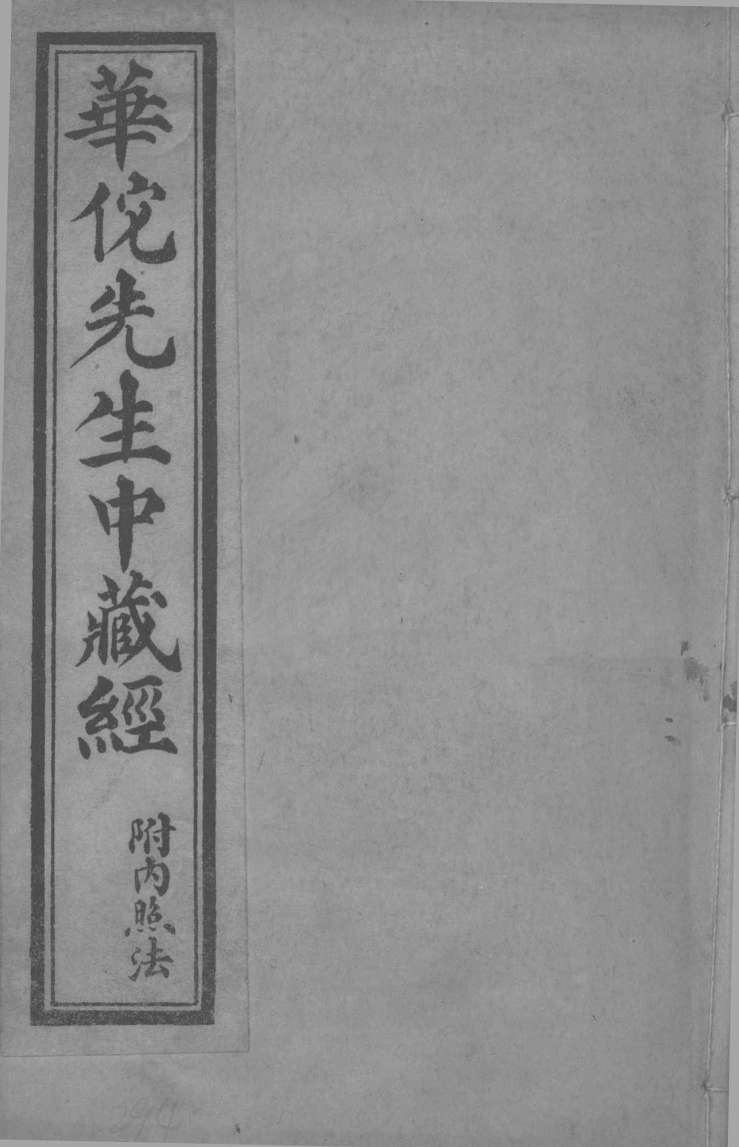 華佗先生中藏經
附內照法